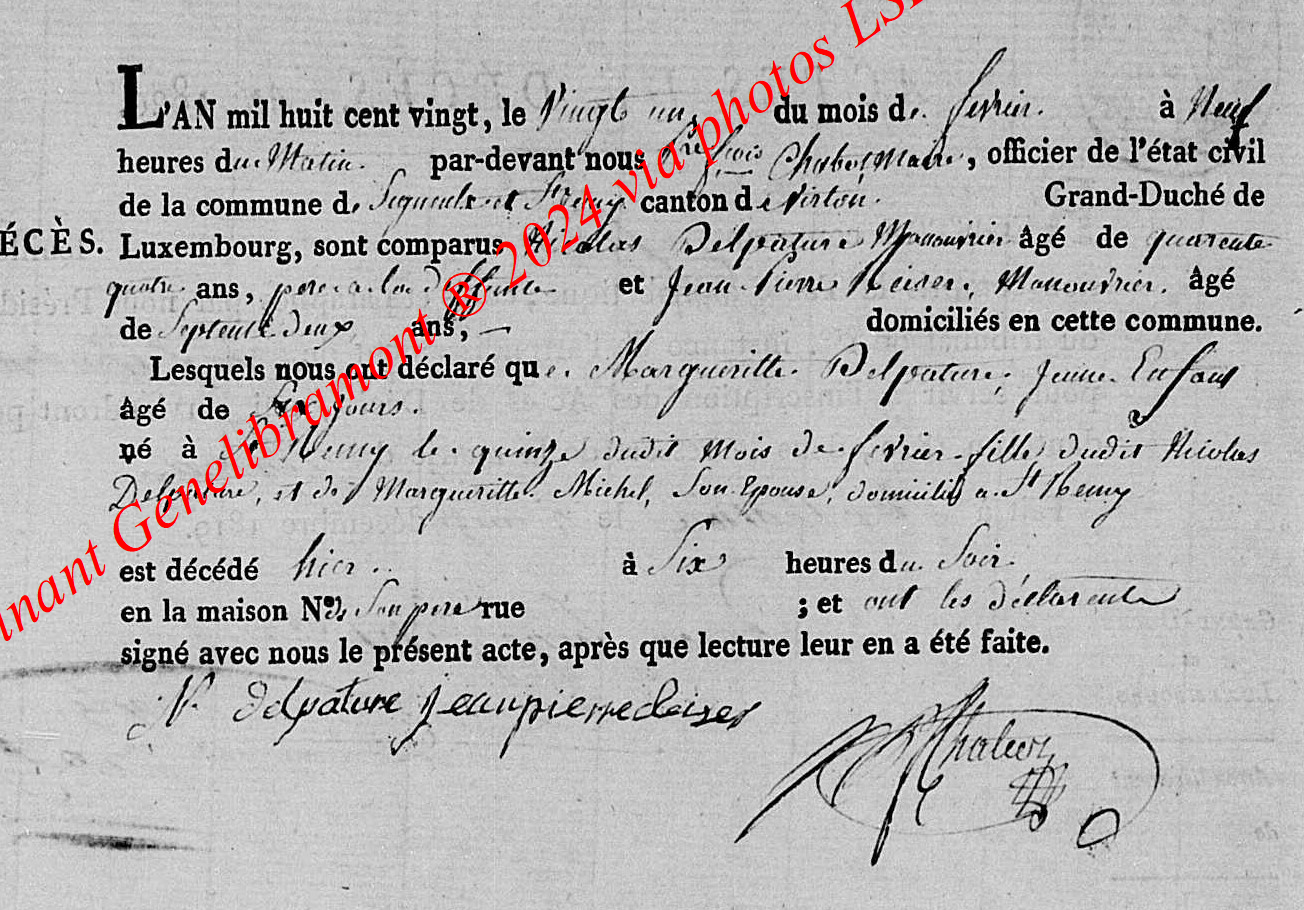 L'AN mil huit cent vingt, le Vingt un, du mois de fevrier. à Neuf
heures du Matin. par-devant nous Chabot, Maire, officier de l'état civil
de la commune de et St Remy canton de virton. Grand-Duché de
ÉCÈS. Luxembourg, sont comparus Nicolas Delpature Manouvrier âgé de quarente
quatre ans, pere a la deffunte et Jean Pierre Manouvrier. âgé
de Septente deux ans, — domiciliés en cette commune.
Lesquels nous ont déclaré que Margueritte Delpature, jeune Enfant
âgé de Six jours.
né à St Remy le quinze dudit mois de fevrier fille dudit Nicolas
Delpature, et de Margueritte Michel, Son Epouse, domiciliés a St Remy
est décédé hier. à Six heures du Soir.
en la maison No. de Son pere rue ; et ont les déclarents
signé avec nous le présent acte, après que lecture leur en a été faite.
N delpature jeanpierre Chabot
nant Genelibramont ® 2024 via photos LS